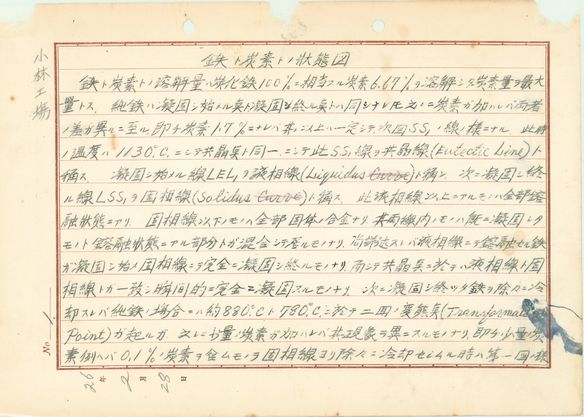 鉄ト炭素トノ状態図
鉄ト炭素トノ溶解量ハ炭化鉄100%ニ相当スル炭素6.67%ヲ溶解シタ炭素量ヲ最大
量トス. 純鉄ハ凝固シ始メル点ト凝固シ終ル点トハ同シナレ共之ニ炭素ガ加ハレバ両者
ノ差ガ異ルニ至ル, 即チ炭素1.7%ニナレバ其レ以上ハ一定シテ次図SS₁ノ線ノ様ニナル. 此時
ノ温度ハ1130℃ニシテ共晶点ト同一ニシテ此SS₁線ヲ共晶線(Eutectic Line)ト
称ス. 凝固シ始メル線LEL₁ヲ液相線(Liquidus Curve)ト称シ 次ニ凝固シ終
ル線LSS₁ヲ固相線(Solidus Curve)ト称ス. 此液相線以上ニアルモノハ全部鎔
融状態ニアリ. 固相線以下ノモノハ全部固体ノ合金ナリ 其両線内ノモノハ既ニ凝固シタ
モノト鎔融状態ニアル部分トガ混合シテ居ルモノナリ. 尚詳述スレバ液相線ニテ鎔融セル鉄
ガ凝固シ始メ固相線ニテ完全ニ凝固シ終ルモノナリ. 而シテ共晶点ニ於テハ液相線ト固
相線トガ一致シ瞬間的ニ完全ニ凝固スルモノナリ. 次ニ凝固シ終ッタ鉄ヲ除々ニ冷
却スレバ純鉄ノ場合ニハ約880℃ト780℃ニ於テ二回ノ変態点(Transformation
Point)ガ起ルガ 之レニ少量ノ炭素ガ加ハレバ其現象ヲ異ニスルモノナリ. 即チ少量ノ炭
素例ヘバ0.1%ノ炭素ヲ含ムモノヲ固相線ヨリ除々ニ冷却セシムル時ハ第一回ノ様
小林工場
No. 1
26年2月28日